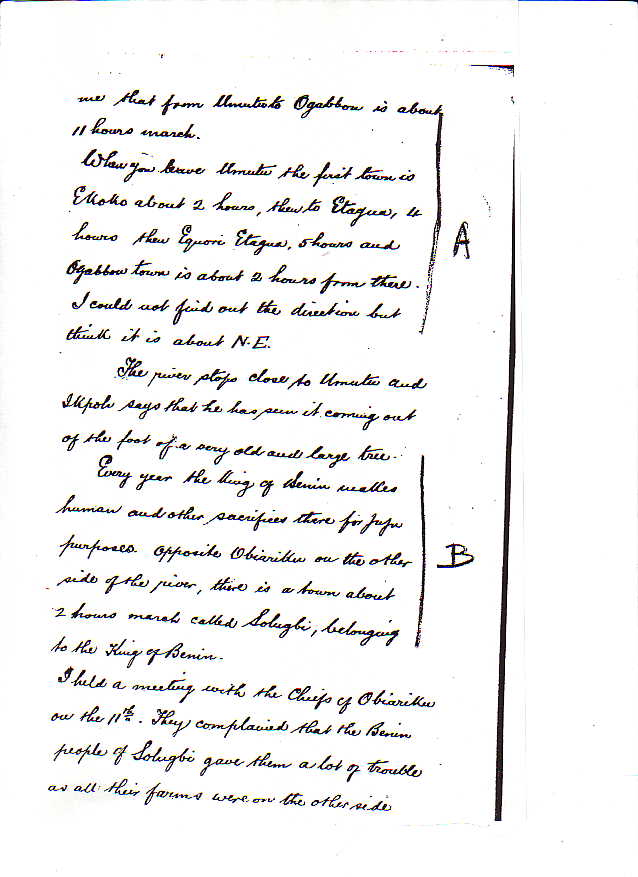 me that from Umutu to Ogabbou is about
11 hours march.
When you leave Umutu the first town is
Ekoko about 2 hours, then to Etagua, 4
hours then Equori Etagua, 5 hours and
Ogabbou town is about 2 hours from there.
I could not find out the direction but
think it is about N.E.
The river stops close to Umutu and
Ikpoh says that he has seen it coming out
of the foot of a very old and large tree.
Every year the King of Benin makes
human and other sacrifices there for Juju
purposes. Opposite Obiariku on the other
side of the river, there is a town about
2 hours march called Solugbi, belonging
to the King of Benin.
I held a meeting with the Chiefs of Obiariku
on the 11th. They complained that the Benin
people of Solugbi gave them a lot of trouble
as all their farms were on the other side
A
B